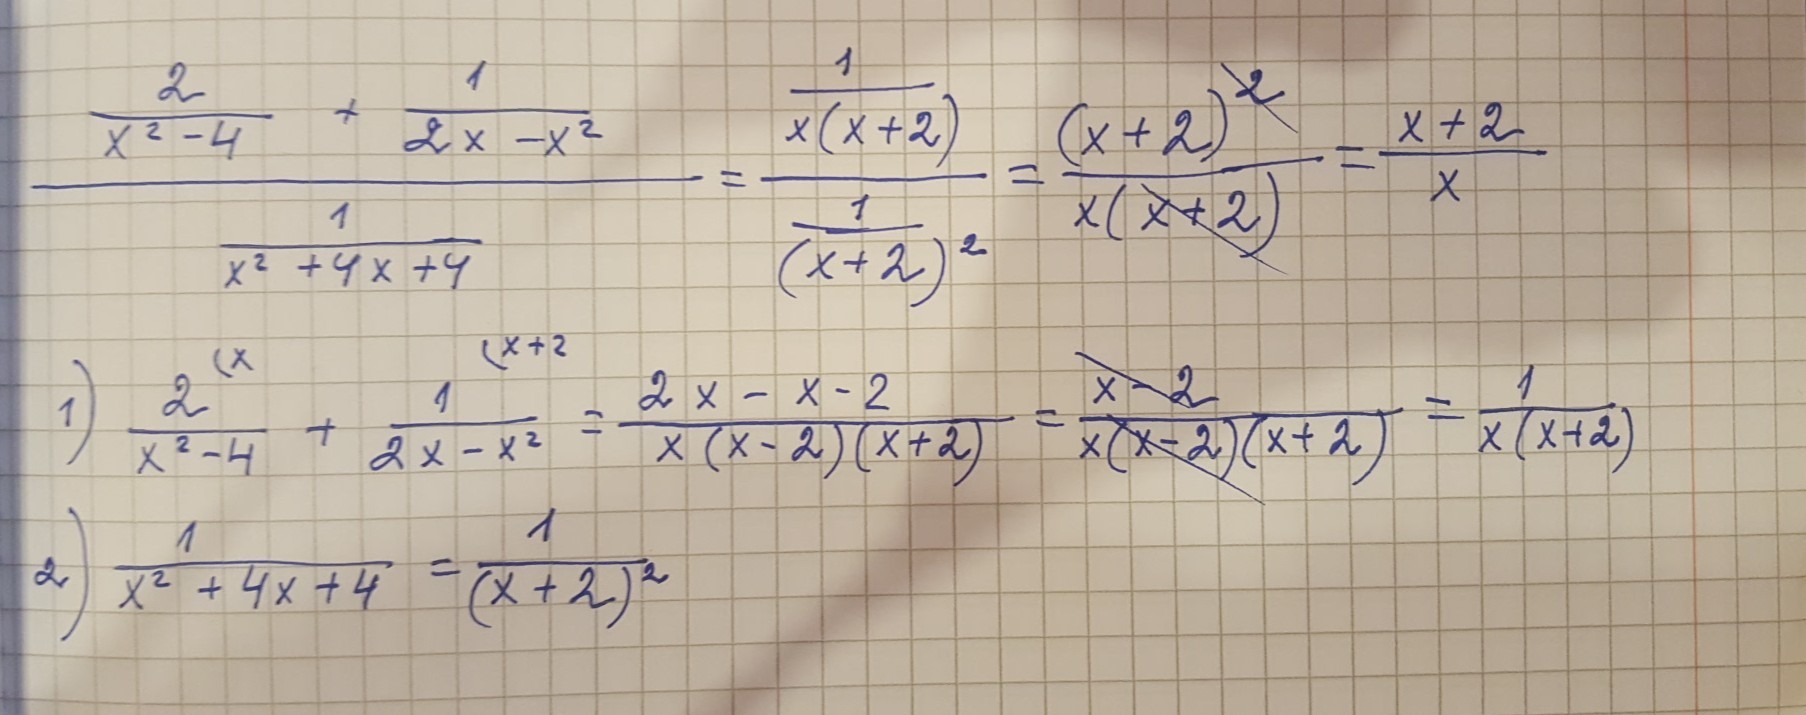 (2/(x² - 4) + 1/(2x - x²)) / (1/(x² + 4x + 4)) = (1/(x(x+2))) / (1/(x+2)²) = (x+2)²/(x(x+2)) = (x+2)/x
1) 2(x/(x² - 4) + 1(x+2/(2x - x²) = (2x - x - 2)/(x(x-2)(x+2)) = (x - 2)/(x(x-2)(x+2)) = 1/(x(x+2))
2) 1/(x² + 4x + 4) = 1/(x+2)²